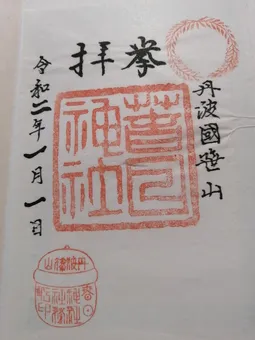 奉拝
丹波國笹山
春日神社
令和二年一月一日